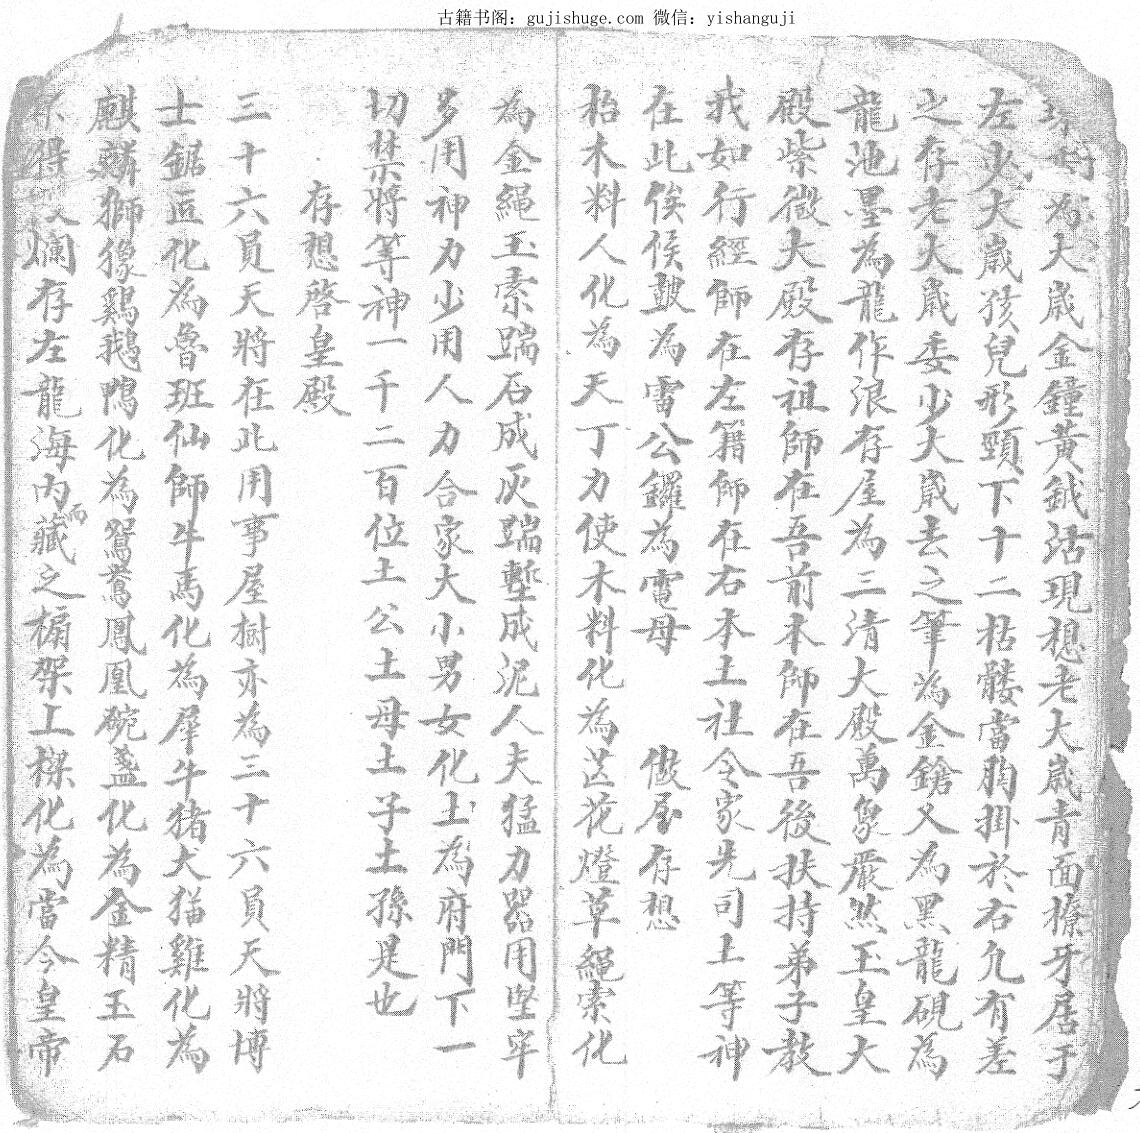 古籍书阁：gujishuge.com 微信：yishanguji
為大歲金鐘黃鉞活現想老大歲青面獠牙居于
左少大歲孩兒形頸下十二枯髏當胸掛於右九有差
之存老大歲委少大歲去之筆為金鎗又為黑龍硯為
龍池墨為龍作浪存屋為三清大殿萬象嚴然玉皇大
殿紫微大殿存祖師在吾前本師在吾後扶持弟子教
我如行經師在左籍師在右本土社令家先司土等神
在此俟候皷為雷公鑼為電母 做屋存想
枱木料人化為天丁力使木料化為送花燈草繩索化
為金繩玉索踹石成灰踹塹成泥人夫猛力器用堅牢
多用神力少用人力合家大小男女化土為府門下一
切禁將等神一千二百位土公土母土子土孫是也
存想啓皇殿
三十六員天將在此用事屋樹亦為三十六員天將博
士鋸匠化為魯班仙師牛馬化為犀牛猪犬猫雞化為
麒麟獅獴鷄鵝鴨化為鴛鴦鳳凰碗盞化為金精玉石
不得爛存左龍海內而藏之榍架上樑化為當今皇帝